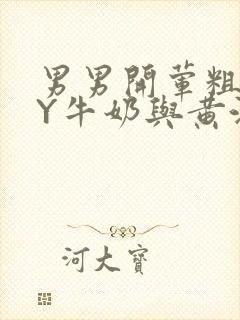 男男開葷粗
Y牛奶與黄
河大寶